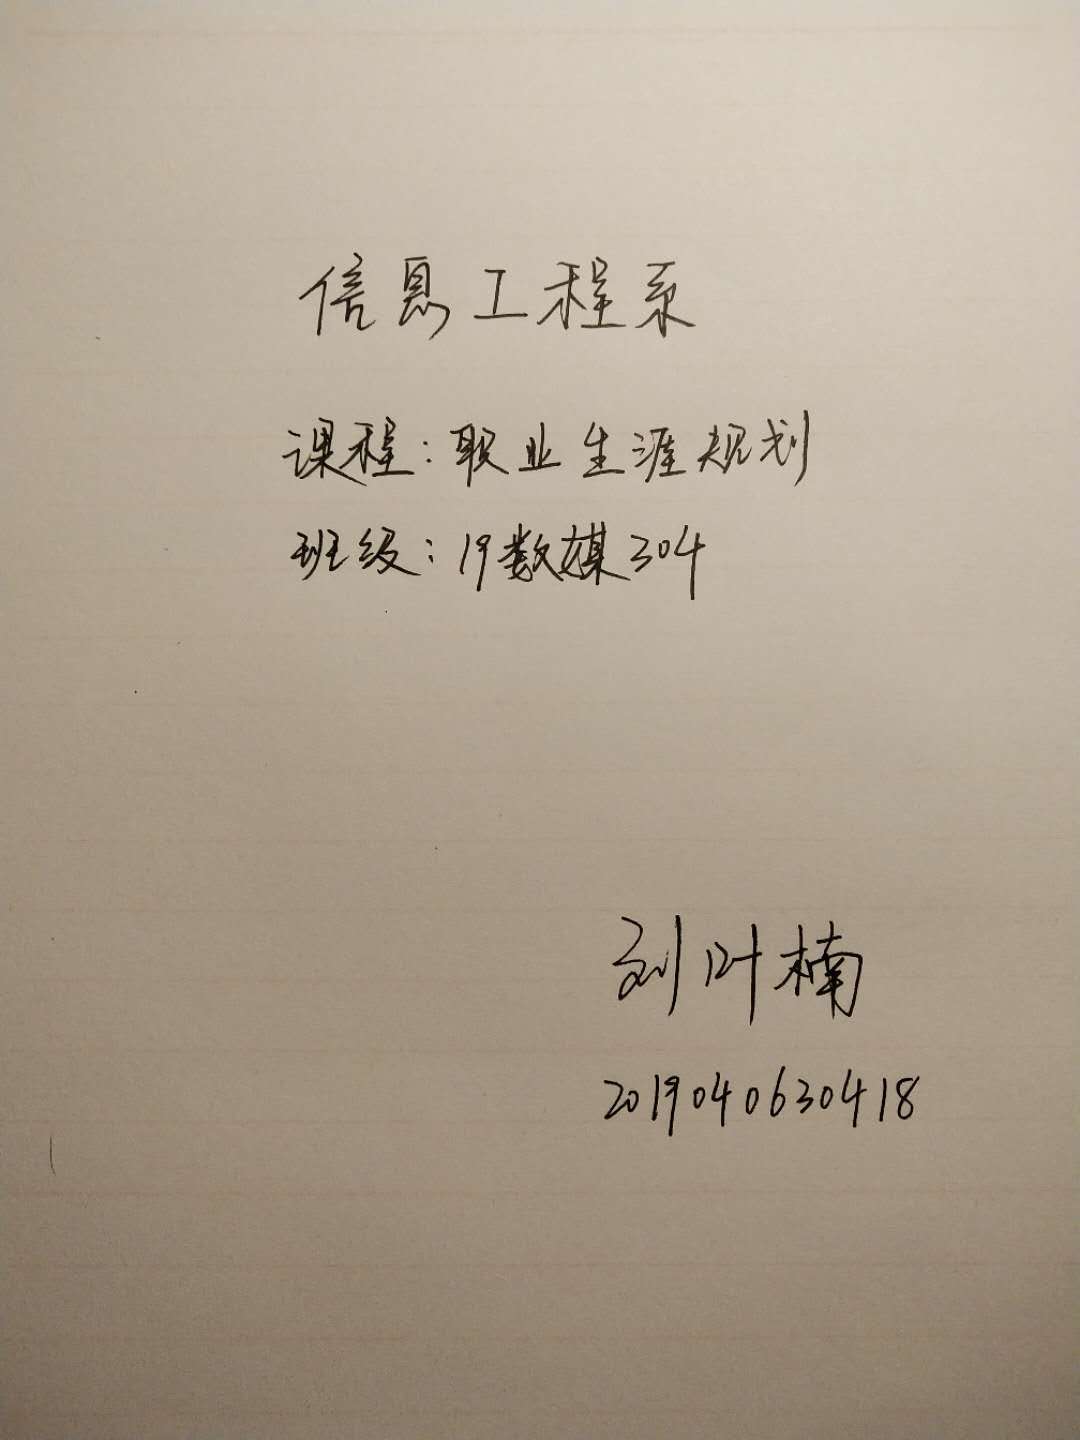 信息工程系
课程：职业生涯规划
班级：19数媒304
刘叶楠
2019040630418